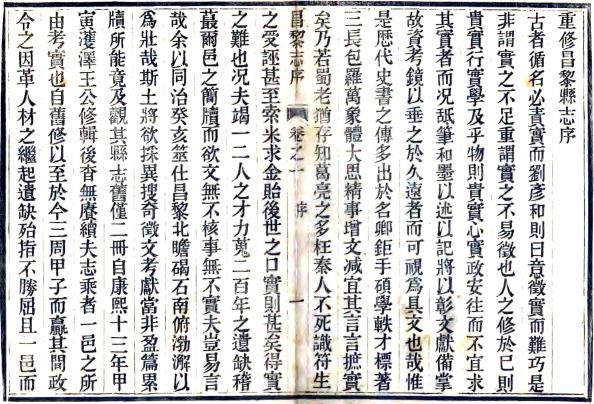 重修昌黎縣志序
古者循名必責實而劉彥和則曰意徵實而難巧是
非謂實之不足重謂實之不易徵也人之修於已則
貴實行實學及乎物則貴實心實政安往而不宜求
其實者而况舐筆和墨以述以記將以彰文獻備掌
故資考鏡以垂之於久遠者而可視為具文也哉惟
是歷代史書之傳多出於名卿鉅手碩學軼才標著
三長包羅萬象體大思精事增文減宜其言言摭實
矣乃若蜀老猶存知葛亮之多枉秦人不死識符生
昌黎志序 卷之一 序 一
之受誣甚至索米求金貽後世之口實則甚矣得實
之難也况夫竭一二人之才力蒐二百年之遺缺稽
蕞爾邑之簡牘而欲文無不核事無不實夫豈易言
哉余以同治癸亥筮仕昌黎北瞻碣石南俯渤澥以
為壯哉斯土將欲採異搜奇徵文考獻當非盈篇累
牘所能竟及觀其縣志舊僅二冊自康熙十三年甲
寅濩澤王公修輯後杳無賡續夫志乘者一邑之所
由考實也自舊修以至於今三周甲子而贏其間政
令之因革人材之繼起遺缺殆指不勝屈且一邑而